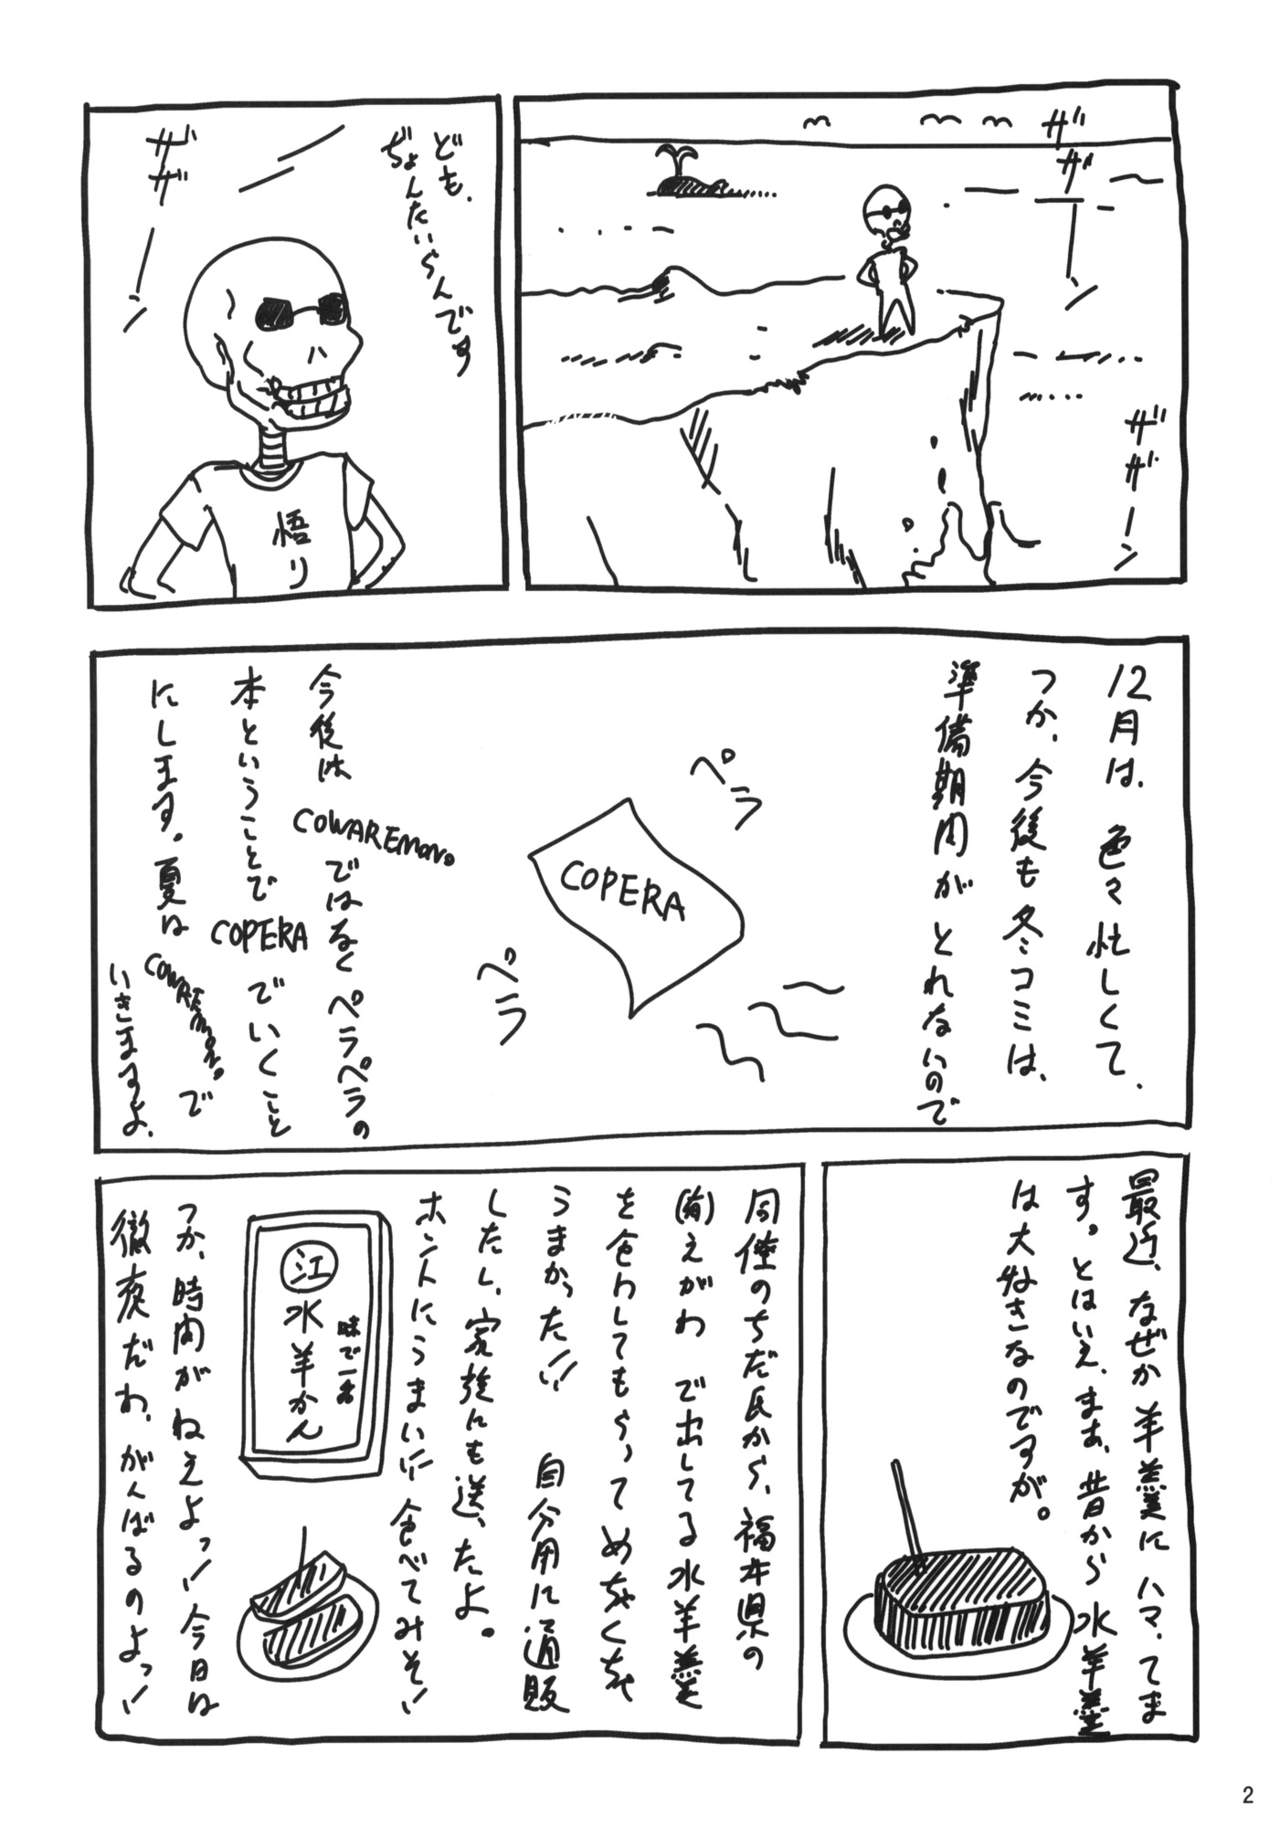 ザザーン
ザザーン
ども、
ぢょんたいらんです
ザザーン
悟り
12月は、色々忙しくて、
つか、今後も冬コミは、
準備期間がとれないので
ペラ
COPERA
ペラ
今後は
COWAREMONO。
ではなくペラペラの
本ということで
COPERA
でいくこと
にします。夏は
COWAREMONO。
で
いきますよ、
最近、なぜか羊羹にハマってま
す。とはいえ、まぁ、昔から水羊羹
は大好きなのですが。
同僚のちだ氏から、福井県の
(有)えがわで出してる水羊羹
を食わしてもらってめちゃくちゃ
うまかった!!!自分用に通販
したし、家族にも送ったよ。
ホントにうまい!!!食べてみそ!!
江
水羊かん
味で一番
つか、時間がねえよっ!!今日は
徹夜だわ、がんばるのよっ!!
2